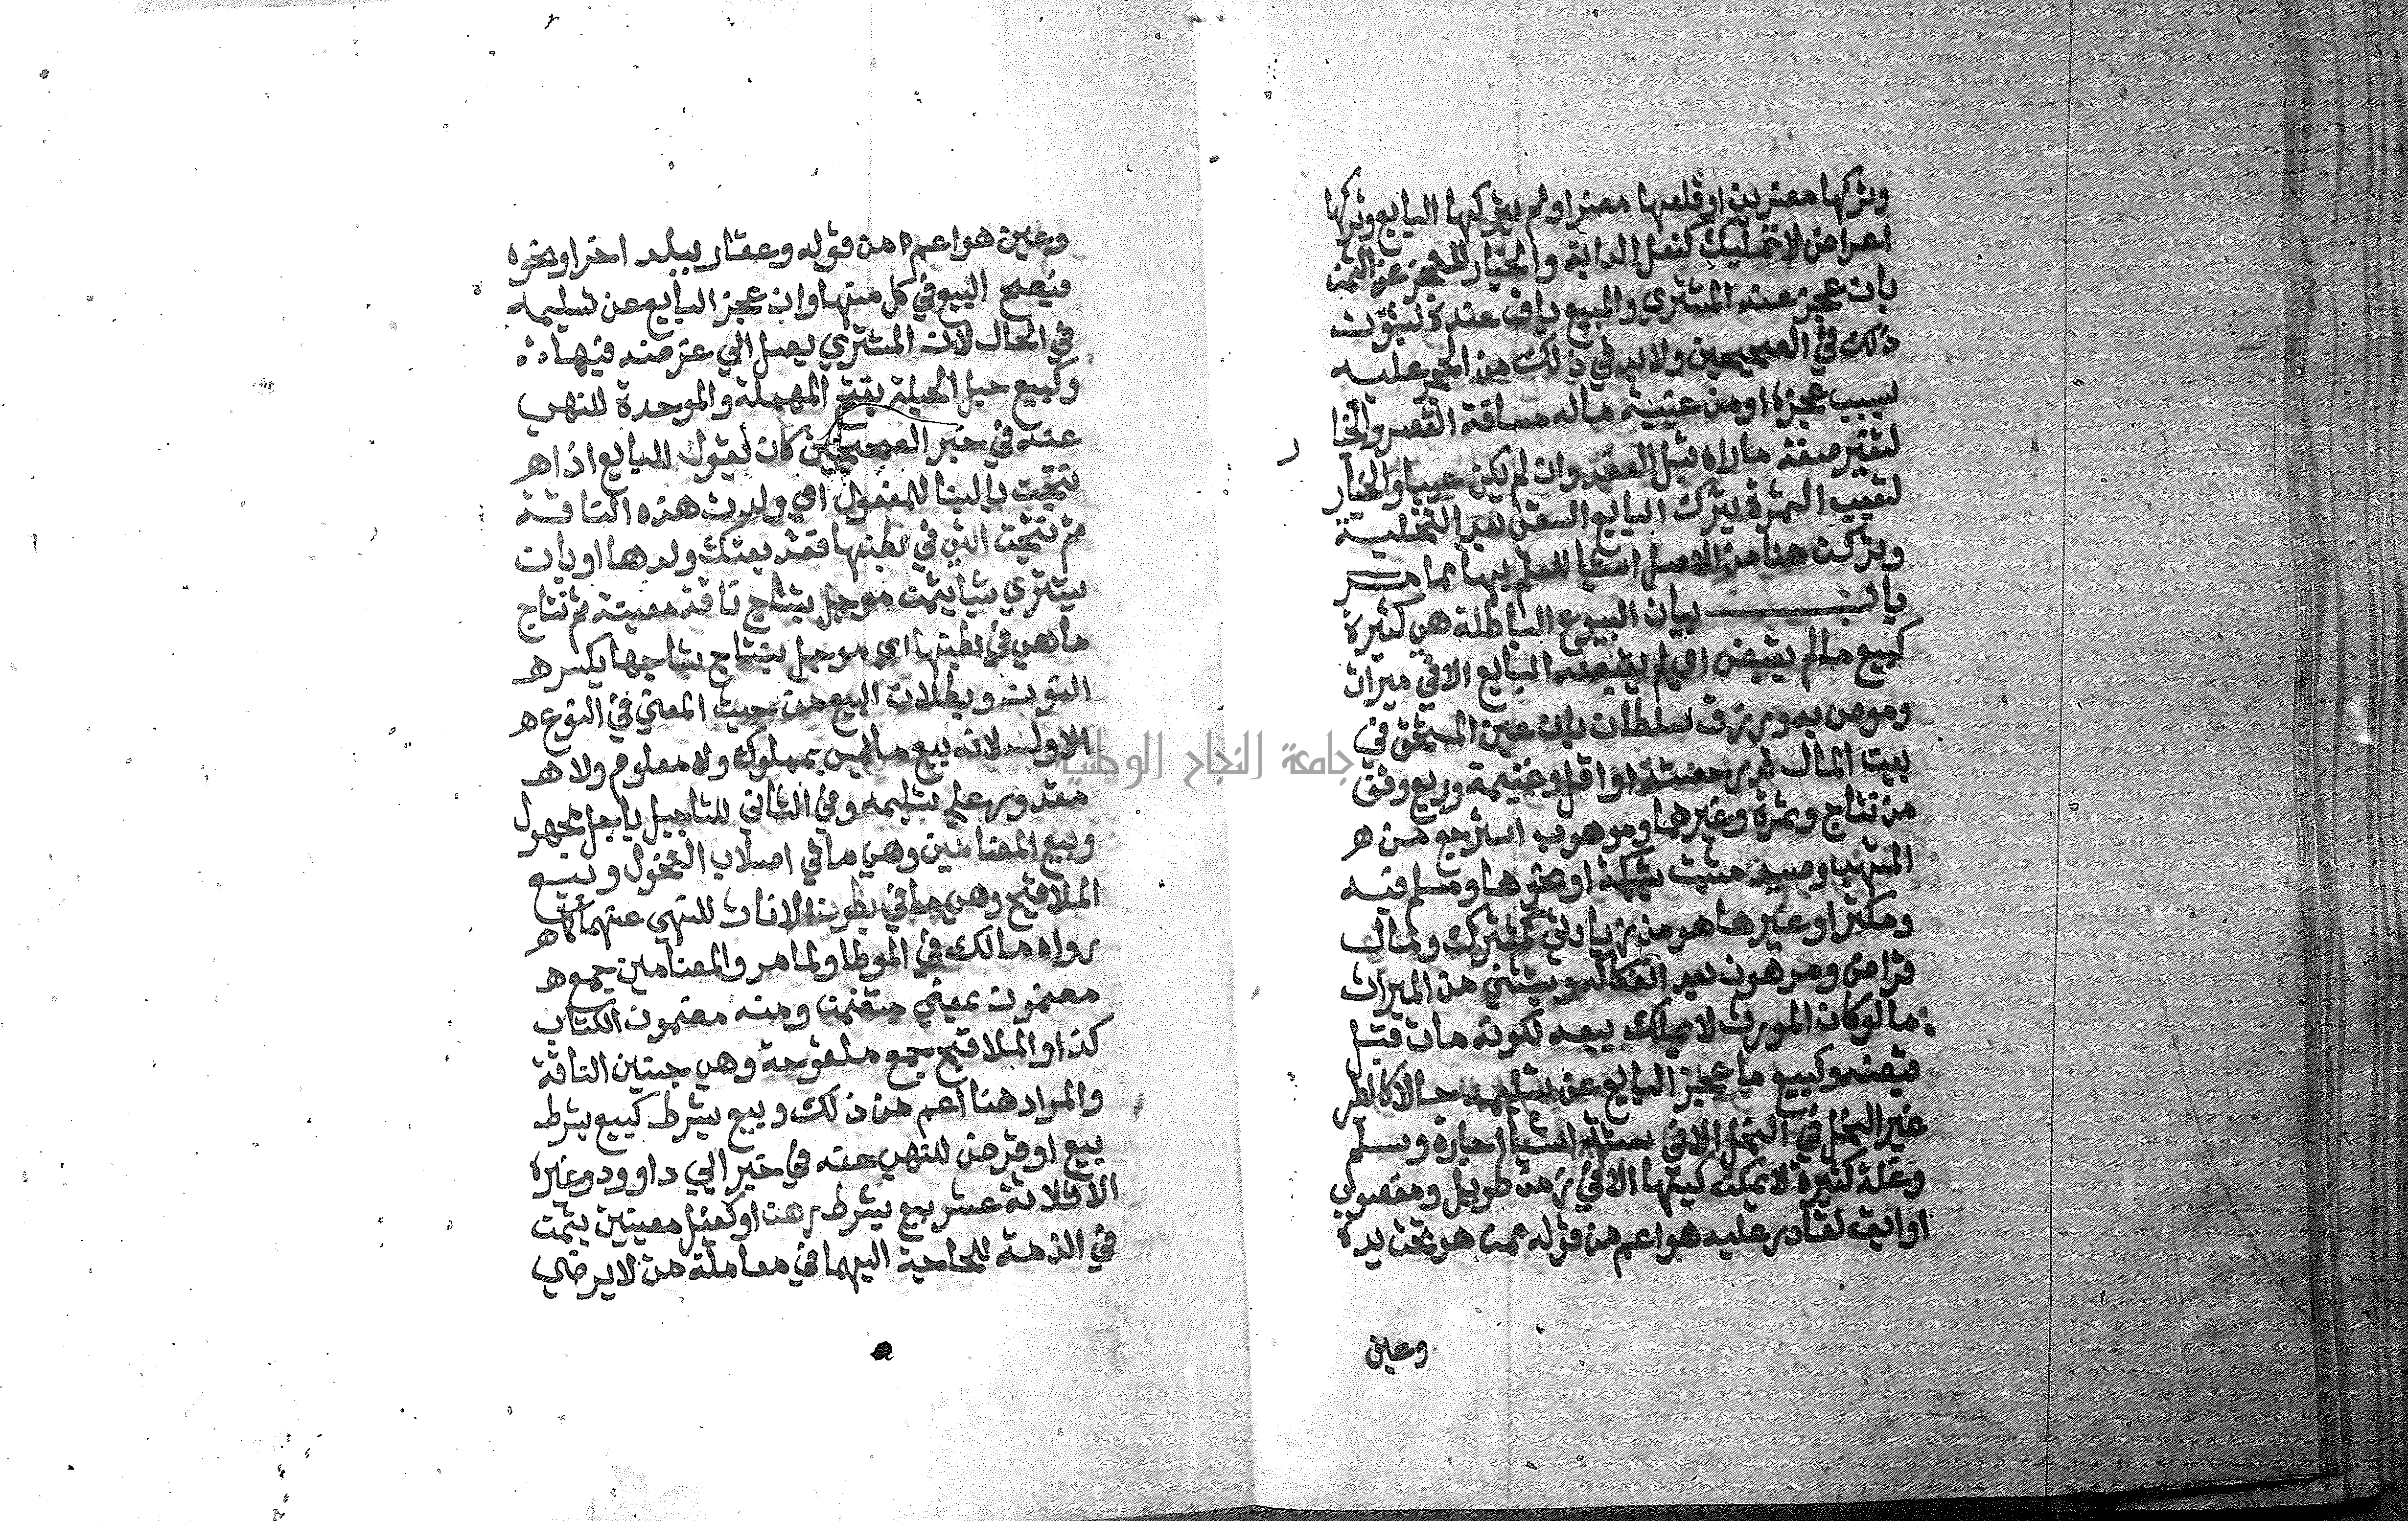 وتركها مضر بدن او قلعها مضر او لم يتركها البايع وتركها
اعراض لا تمليك كنعل الدابة والخيار للعجز عن الثمن
بان عجز عنه المشتري والمبيع باق عنده لثبوت
ذلك في الصحيحين ولابد في ذلك من الحجر عليه
بسبب عجزه او من غيبة ماله مسافة القصر والخيا
ر
لتغير صفة ما راه قبل العقد وان لم يكن عيبا والخيار
لتعييب الثمرة بترك البايع السقي بعد التخلية
وتركت هنا من الاصل اشيا للعلم بها مما مر
باب بيان البيوع الباطلة هي كثيرة
كبيع ما لم يقبض اي لم يقبضه البايع الا في ميراث
وموصى به ورزق سلطان بان عين المستحق في
بيت المال قدر حصته او اقل وغنيمة وريع وقف
من نتاج وثمرة وغيرهما وموهوب استرجع من ه
المتهب وصيد مثبت بشبكة او نحوها ومسلم فيه
ومكترا وغيرها هو من زيادتي كمشترك ومال
قراض ومرهون بعد انفكاكه ويستثني من الميراث
ما لو كان المورث لا يملك بيعه لكونه مات قبل
قبضه وكبيع ما عجز البايع عن تسليمه حالا كالطير
غير النحل في النحل الا في ستة اشيا اجارة وسلم
وغلة كثيرة لا يمكن كيلها الا في زمن طويل ومغصوب
او ابق لقادر عليه هو اعم من قوله ممن هو تحت يده
وعين
وعين هو اعم من قوله وعقار ببلد اخر او نحوه
فيصح البيع في كل منها وان عجز البايع عن تسليمه
في الحال لان المشتري يصل الي غرضه فيها
وكبيع حبل الحبلة بفتح المهملة والموحدة للنهي
عنه في خبر الصحيحين كان يقول البايع اذا ه
نتجت بالبنا للمفعول اي ولدت هذه الناقة
ثم نتجت التي في بطنها فقد بعتك ولدها او بان
يشتري شيا بثمن موجل بنتاج ناقة معينة ثم نتاج
ما هي في بطنها اي موجل بنتاج نتاجها بكسر ه
النون وبطلان البيع من حيث المعني في النوع ه
الاول لانه بيع ما ليس بمملوك ولا معلوم ولا ه
مقدور علي تسليمه وفي الثاني للتاجيل باجل مجهول
وبيع المضامين وهي ما في اصلاب الفحول وبيع
الملاقيح وهي ما في بطون الاناث للنهي عنهما كما
رواه مالك في الموطا ولما مر والمضامين جمع ه
مضمون بمعني متضمن ومنه مضمون الكتاب
كذا والملاقيح جمع ملقوحة وهي جنين الناقة
والمراد هنا اعم من ذلك وبيع بشرط كبيع بشرط
بيع او قرض للنهي عنه في خبر ابي داوود وغيره
الا ثلاثة عشر بيع بشرط رهن او كفيل معينين بثمن
في الذمة للحاجة اليهما في معاملة من لا يرضي
جامعة النجاح الوطنية